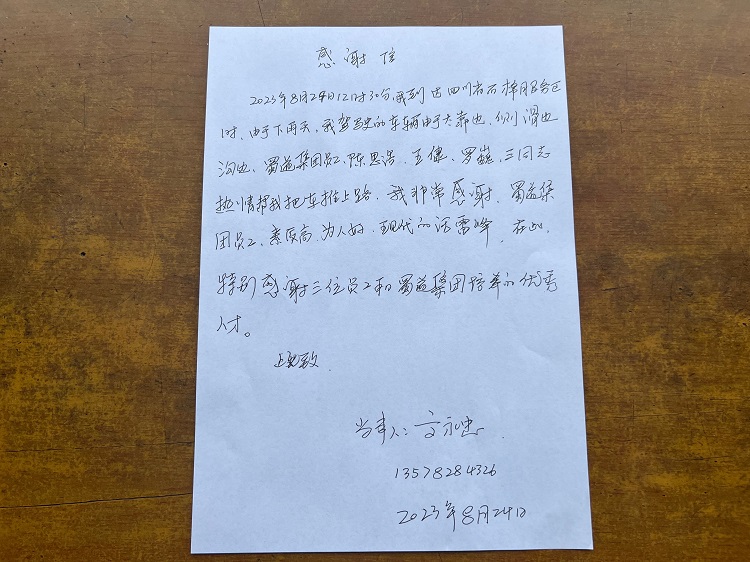 感谢信
2023年8月24日12时30分,我到达四川省石梓服务区
时,由于下雨天,我驾驶的车辆由于大靠边,侧滑边
沟边,蜀益集团员工,陈思浩、王健、罗巍,三同志
热情帮我把车推上路,我非常感谢,蜀益集
团员工,素质高,为人好,现代的活雷锋,在此,
特别感谢三位员工和蜀益集团培养的优秀
人才。
此致
当事人:
13578284326
2023年8月24日